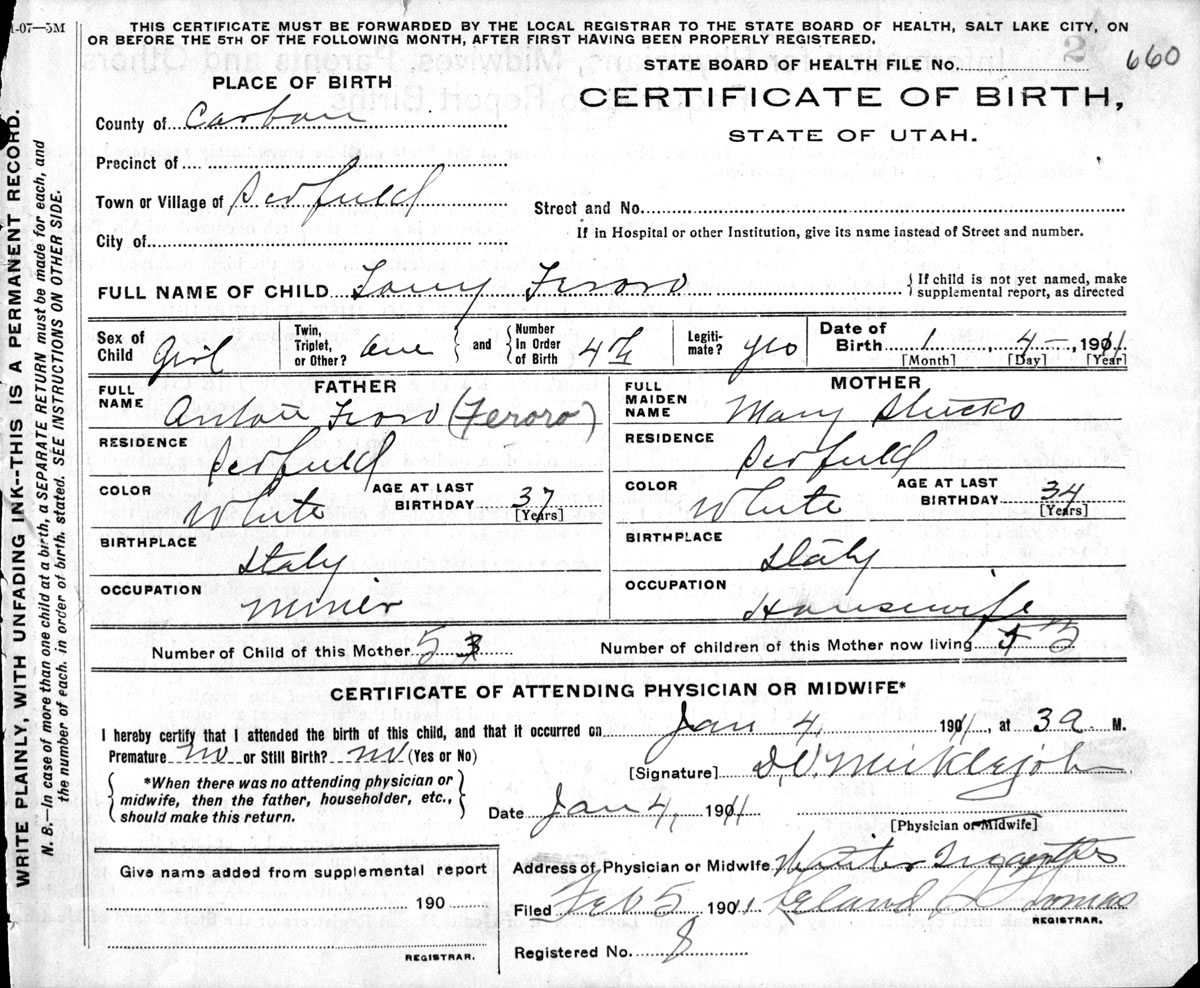 1-07—5M
THIS CERTIFICATE MUST BE FORWARDED BY THE LOCAL REGISTRAR TO THE STATE BOARD OF HEALTH, SALT LAKE CITY, ON
OR BEFORE THE 5TH OF THE FOLLOWING MONTH, AFTER FIRST HAVING BEEN PROPERLY REGISTERED.
STATE BOARD OF HEALTH FILE No. 2 660
PLACE OF BIRTH
CERTIFICATE OF BIRTH,
STATE OF UTAH.
County of Carbon
Precinct of
Town or Village of Scofield
Street and No.
City of
If in Hospital or other Institution, give its name instead of Street and number.
FULL NAME OF CHILD Feroro { If child is not yet named, make
supplemental report, as directed
Sex of Child Girl
Twin, Triplet, or Other? One
and
Number In Order of Birth 4th
Legitimate? yes
Date of Birth 1, 4—, 1911
[Month] [Day] [Year]
FATHER
FULL NAME Anton (Feroro)
RESIDENCE Scofield
COLOR White AGE AT LAST BIRTHDAY 37 [Years]
BIRTHPLACE Italy
OCCUPATION Miner
MOTHER
FULL MAIDEN NAME Mary
RESIDENCE Scofield
COLOR White AGE AT LAST BIRTHDAY 34 [Years]
BIRTHPLACE Italy
OCCUPATION Housewife
Number of Child of this Mother 5 3
Number of children of this Mother now living 5
CERTIFICATE OF ATTENDING PHYSICIAN OR MIDWIFE*
I hereby certify that I attended the birth of this child, and that it occurred on Jan 4, 1911, at 3 a M.
Premature no or Still Birth? no (Yes or No)
[Signature]
*When there was no attending physician or
midwife, then the father, householder, etc.,
should make this return.
Date Jan 4, 1911
[Physician or Midwife]
Address of Physician or Midwife Winter Quarters
Give name added from supplemental report
190
REGISTRAR.
Filed Feb 5, 1901, Leland Thomas
REGISTRAR.
Registered No. 8
WRITE PLAINLY, WITH UNFADING INK--THIS IS A PERMANENT RECORD.
N. B.—In case of more than one child at a birth, a SEPARATE RETURN must be made for each, and
the number of each, in order of birth, stated. SEE INSTRUCTIONS ON OTHER SIDE.